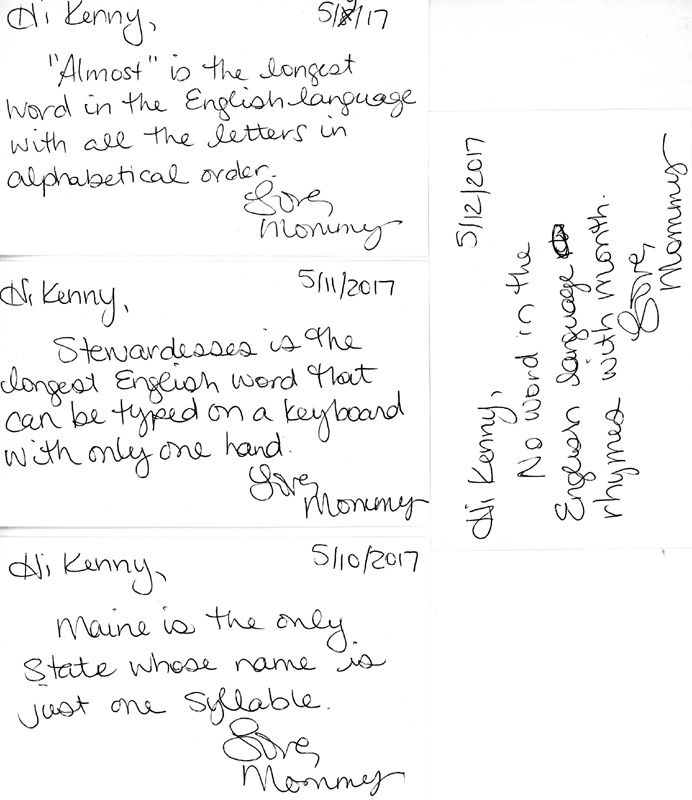 Hi Kenny, 5/8/17
"Almost" is the longest
word in the English language
with all the letters in
alphabetical order.
Love,
Mommy
Hi Kenny, 5/11/2017
Stewardesses is the
longest English word that
can be typed on a keyboard
with only one hand.
Love,
Mommy
Hi Kenny, 5/10/2017
Maine is the only
State whose name is
just one syllable.
Love,
Mommy
Hi Kenny, 5/12/2017
No word in the
English language
rhymes with month.
Love,
Mommy